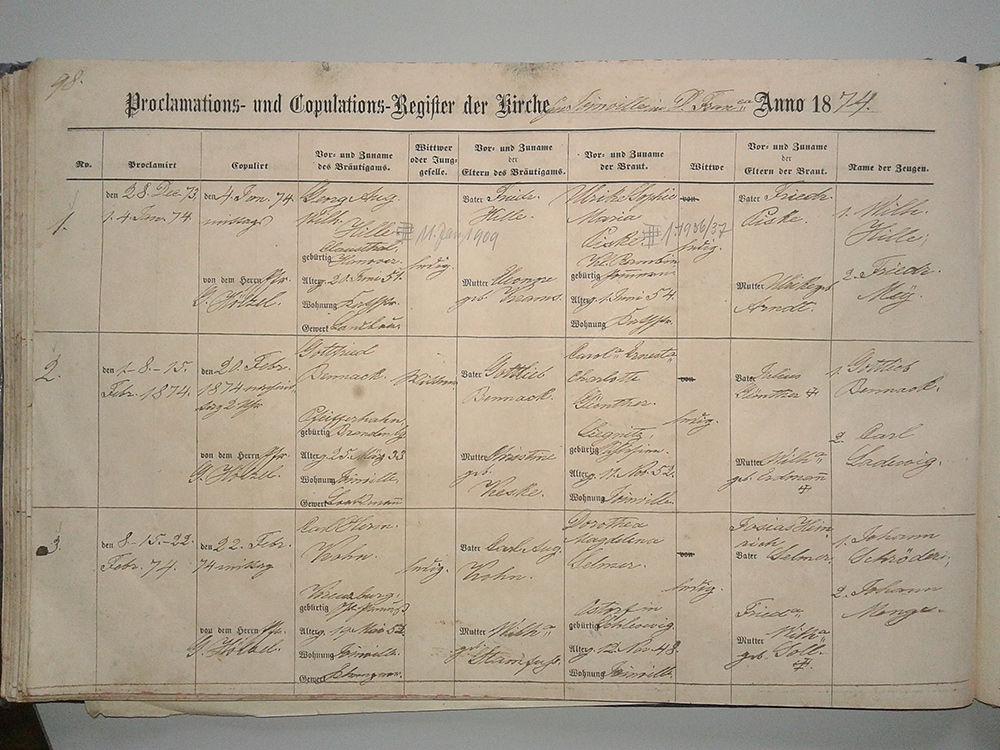 98.
Proclamations- und Copulations-Register der Kirche zu Joinville in D. Franca Anno 1874.
No. Proclamirt Copulirt Vor- und Zuname des Bräutigams. Wittwer oder Junggeselle. Vor- und Zuname der Eltern des Bräutigams. Vor- und Zuname der Braut. Wittwe Vor- und Zuname der Eltern der Braut. Name der Zeugen.
1.
den 28. Dec 73
1. 4. Jan. 74.
den 4. Jan. 74.
mittag
von dem Herrn Pfr.
G. Hölzel.
Georg Aug.
Wilh.
Hille
11. Jan 1909
Clausthal
gebürtig Hannover.
Alter g. 20. Juni 51.
Wohnung
Gewerk Landbau.
ledig.
Vater
Hille.
Mutter
geb.
Ulrike Sophie
Maria
Piske.
1936/37
gebürtig Pommern
Alter g. 1. Juni 54.
Wohnung
von
ledig.
Vater Friedr.
Piske.
Mutter Ulrike geb.
Arndt.
1. Wilh.
Hille;
2. Friedr.
Mey.
2.
den 1.-8.-15.
Febr. 1874.
den 20. Febr.
1874
tag 2 Uhr
von dem Herrn Pfr.
G. Hölzel.
Gottfried
Bennack.
Pfeifferhahn,
gebürtig Brandenbg
Alter g. 25. März 33
Wohnung Joinville.
Gewerk Landmann
Wittwer
Vater Gottlieb
Bennack.
Mutter Christine
geb.
Keske.
Carola Ernesta
Charlotte
Günther.
Liegnitz,
gebürtig Schlesien.
Alter g. 11. Nov. 52.
Wohnung Joinville.
von
ledig.
Vater Julius
Günther
Mutter Wilha
geb. Erdman
1. Gottlieb
Bennack.
2. Carl
Ladewig.
3.
den 8.-15.-22.
Febr. 74.
den 22. Febr.
74 mittag
von dem Herrn Pfr.
G. Hölzel.
Carl Herm.
Krohn.
gebürtig
Alter g. 14. Mai 52.
Wohnung Joinville.
Gewerk
ledig.
Vater Carl Aug.
Krohn.
Mutter Wilha
geb. Kamfuss.
Dorothea
Magdalena
Selmer.
gebürtig Schleswig.
Alter g. 12. Nov. 48.
Wohnung Joinville.
von
ledig.
Josias Hein
rich
Vater Selmer,
Frieda
Mutter Wilha
geb. Voll.
1. Johann
Schröder;
2. Johann
Menge.